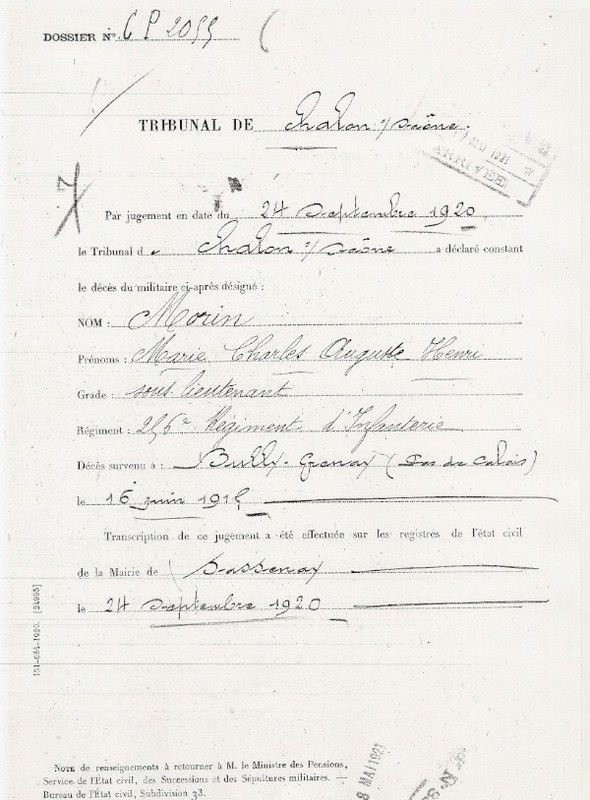 DOSSIER N° CP 2055
TRIBUNAL DE Chalon s/ Saône,
ARRIVÉE
Par jugement en date du 24 Septembre 1920,
le Tribunal de Chalon s/ Saône a déclaré constant
le décès du militaire ci-après désigné :
NOM : Morin
Prénoms : Marie Charles Auguste Henri
Grade : sous lieutenant
Régiment : 256e Régiment d'Infanterie
Décès survenu à : Bully-Grenay (Pas de Calais)
le 16 juin 1915
Transcription de ce jugement a été effectuée sur les registres de l'état civil
de la Mairie de Sassenay
le 24 Septembre 1920
151-684-1920. [24995]
NOTE de renseignements à retourner à M. le Ministre des Pensions,
Service de l'État civil, des Successions et des Sépultures militaires. —
Bureau de l'État civil, Subdivision 33.
8 MAI 1921